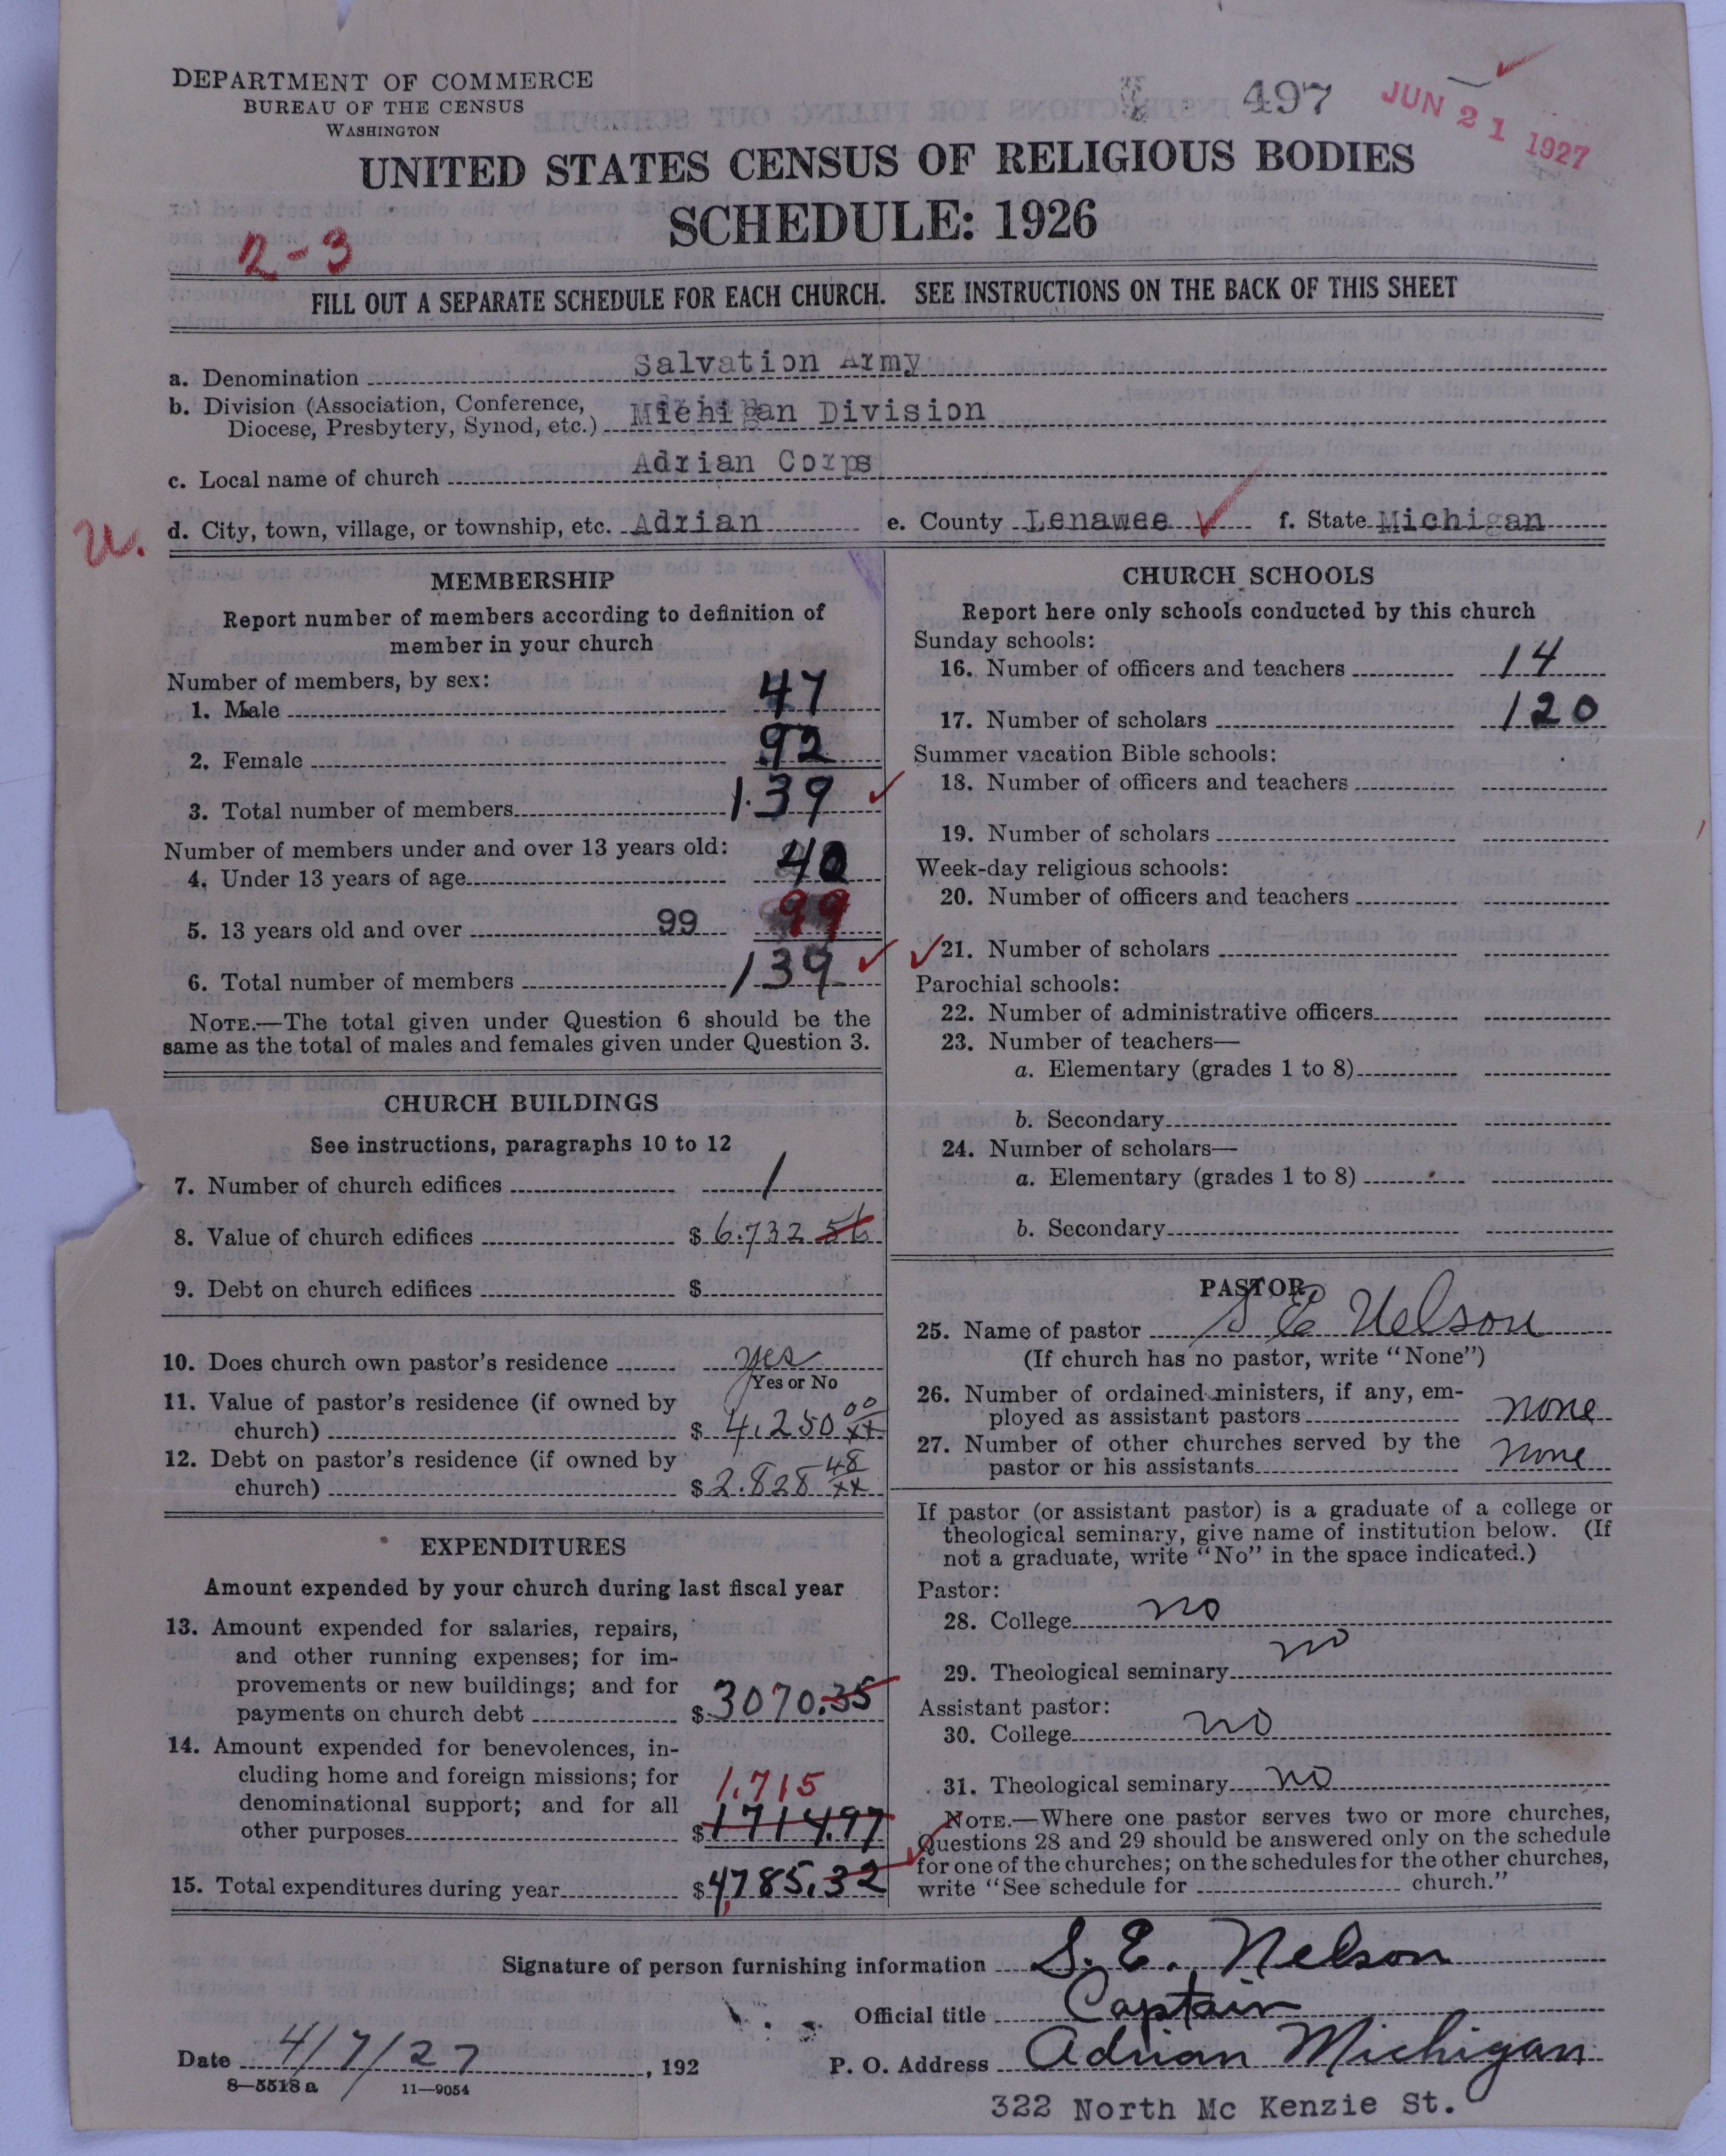 DEPARTMENT OF COMMERCE
BUREAU OF THE CENSUS
WASHINGTON
497
JUN 21 1927
UNITED STATES CENSUS OF RELIGIOUS BODIES
SCHEDULE: 1926
2-3
FILL OUT A SEPARATE SCHEDULE FOR EACH CHURCH. SEE INSTRUCTIONS ON THE BACK OF THIS SHEET
a. Denomination Salvation Army
b. Division (Association, Conference, Diocese, Presbytery, Synod, etc.) Michigan Division
c. Local name of church Adrian Corps
u. d. City, town, village, or township, etc. Adrian e. County Lenawee f. State Michigan
MEMBERSHIP
Report number of members according to definition of
member in your church
Number of members, by sex:
1. Male 47
2. Female 92
3. Total number of members 139
Number of members under and over 13 years old:
4. Under 13 years of age 40
5. 13 years old and over 99 99
6. Total number of members 139
NOTE.—The total given under Question 6 should be the
same as the total of males and females given under Question 3.
CHURCH BUILDINGS
See instructions, paragraphs 10 to 12
7. Number of church edifices 1
8. Value of church edifices $6.732 56
9. Debt on church edifices $
10. Does church own pastor's residence yes
Yes or No
11. Value of pastor's residence (if owned by
church) $4,250 00/xx
12. Debt on pastor's residence (if owned by
church) $2.828 48/xx
EXPENDITURES
Amount expended by your church during last fiscal year
13. Amount expended for salaries, repairs,
and other running expenses; for im-
provements or new buildings; and for
payments on church debt $3070.35
14. Amount expended for benevolences, in-
cluding home and foreign missions; for 1,715
denominational support; and for all
other purposes $1714.97
15. Total expenditures during year $4,785.32
CHURCH SCHOOLS
Report here only schools conducted by this church
Sunday schools:
16. Number of officers and teachers 14
17. Number of scholars 120
Summer vacation Bible schools:
18. Number of officers and teachers
19. Number of scholars
Week-day religious schools:
20. Number of officers and teachers
21. Number of scholars
Parochial schools:
22. Number of administrative officers
23. Number of teachers—
a. Elementary (grades 1 to 8)
b. Secondary
24. Number of scholars—
a. Elementary (grades 1 to 8)
b. Secondary
PASTOR
25. Name of pastor S E Nelson
(If church has no pastor, write "None")
26. Number of ordained ministers, if any, em-
ployed as assistant pastors none
27. Number of other churches served by the
pastor or his assistants none
If pastor (or assistant pastor) is a graduate of a college or
theological seminary, give name of institution below. (If
not a graduate, write "No" in the space indicated.)
Pastor:
28. College no
29. Theological seminary no
Assistant pastor:
30. College no
31. Theological seminary no
NOTE.—Where one pastor serves two or more churches,
Questions 28 and 29 should be answered only on the schedule
for one of the churches; on the schedules for the other churches,
write "See schedule for church."
Signature of person furnishing information S. E. Nelson
Official title Captain
Date 4/7/27, 192 P. O. Address Adrian Michigan
8—5518 a 11—9054
322 North Mc Kenzie St.